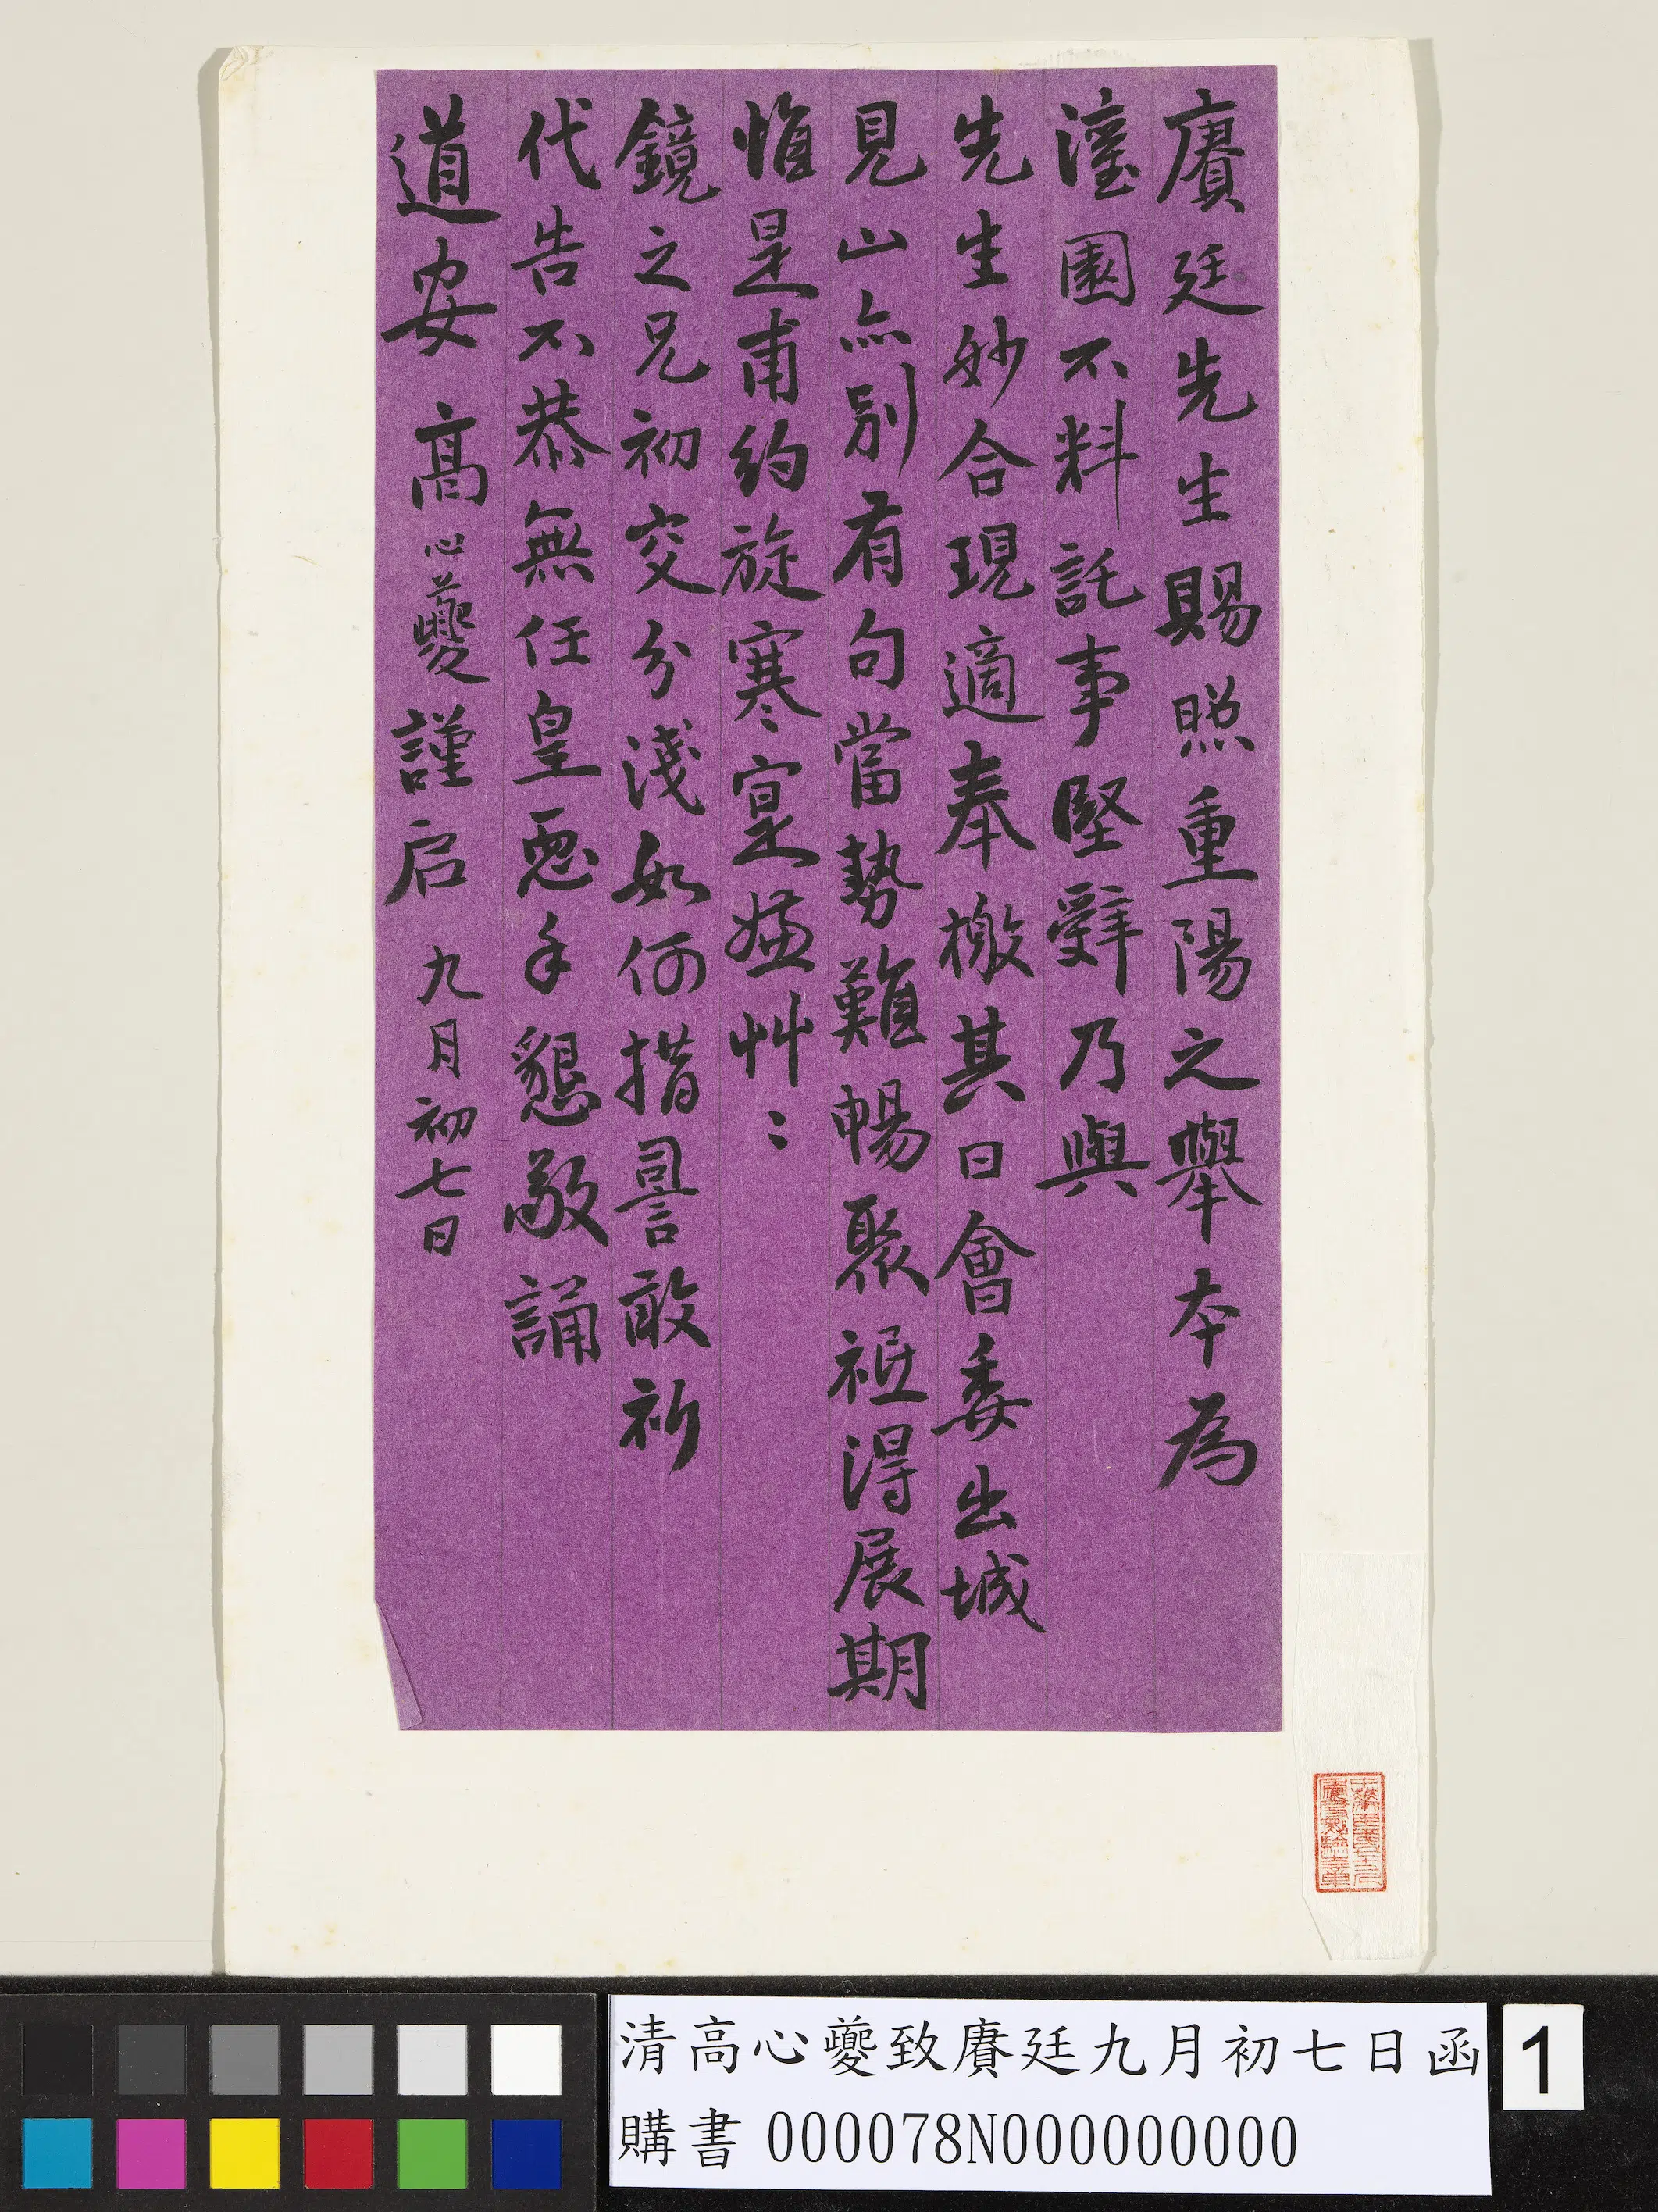 賡廷先生賜照重陽之舉本為
瀅園不料託事堅辭乃與
先生妙合現適奉檄其日會委出城
見山亦別有句當勢難暢聚祗得展期
惟是甫約旋寒寔嫌艸〻
鏡之兄初交分淺如何措詈敢祈
代告不恭無任皇恧手懇敬誦
道安 高心夔謹启 九月初七日
清高心夔致賡廷九月初七日函
購書 000078N000000000
1